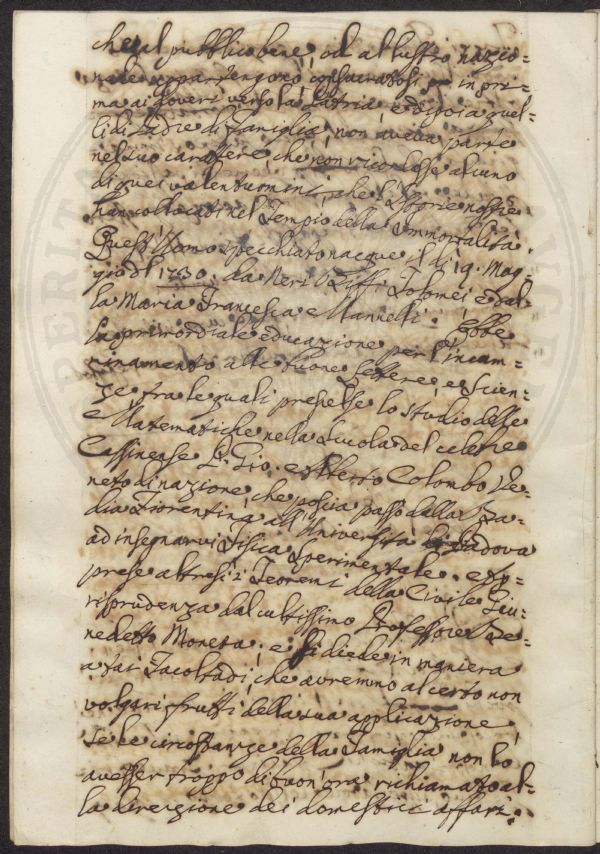 che al pubblico bene, od al lustro nazio=
nale appartengono consacratosi in pri=
ma ai doveri verso la Patria, e dipoi a quel=
li di Padre di Famiglia, non aveva parte
nel suo carattere, che non ricordasse alcuno
di quei valentuomini, che l'Istorie nostre
han collocati nel Tempio della Immortalità.
Quest'Uomo specchiato nacque il dì 19. Mag=
gio del 1730. da Neri Ciffi Tolomei e dal=
la Maria Francesca Mannelli. Ebbe
la primordiale educazione per l'incam=
minamento alle buone Lettere, e Scien=
ze fra le quali prescelse lo studio delle
Matematiche nella Scuola del celebre
Cassinense P. Gio. Alberto Colombo Ve=
neto di nazione, che poscia passò dalla Ba=
dia Fiorentina all'Università di Padova
ad insegnarvi Fisica Sperimentale. Ap=
prese altresì i Teoremi della Civile Giu=
risprudenza dal cultissimo Professore Be=
nedetto Moneta; e si diede in maniera
a tai Facoltadi, che avremmo al certo non
volgari frutti della sua applicazione
se le circostanze della Famiglia non lo
avesser troppo di buon'ora richiamato al=
la direzione dei domestici affari.